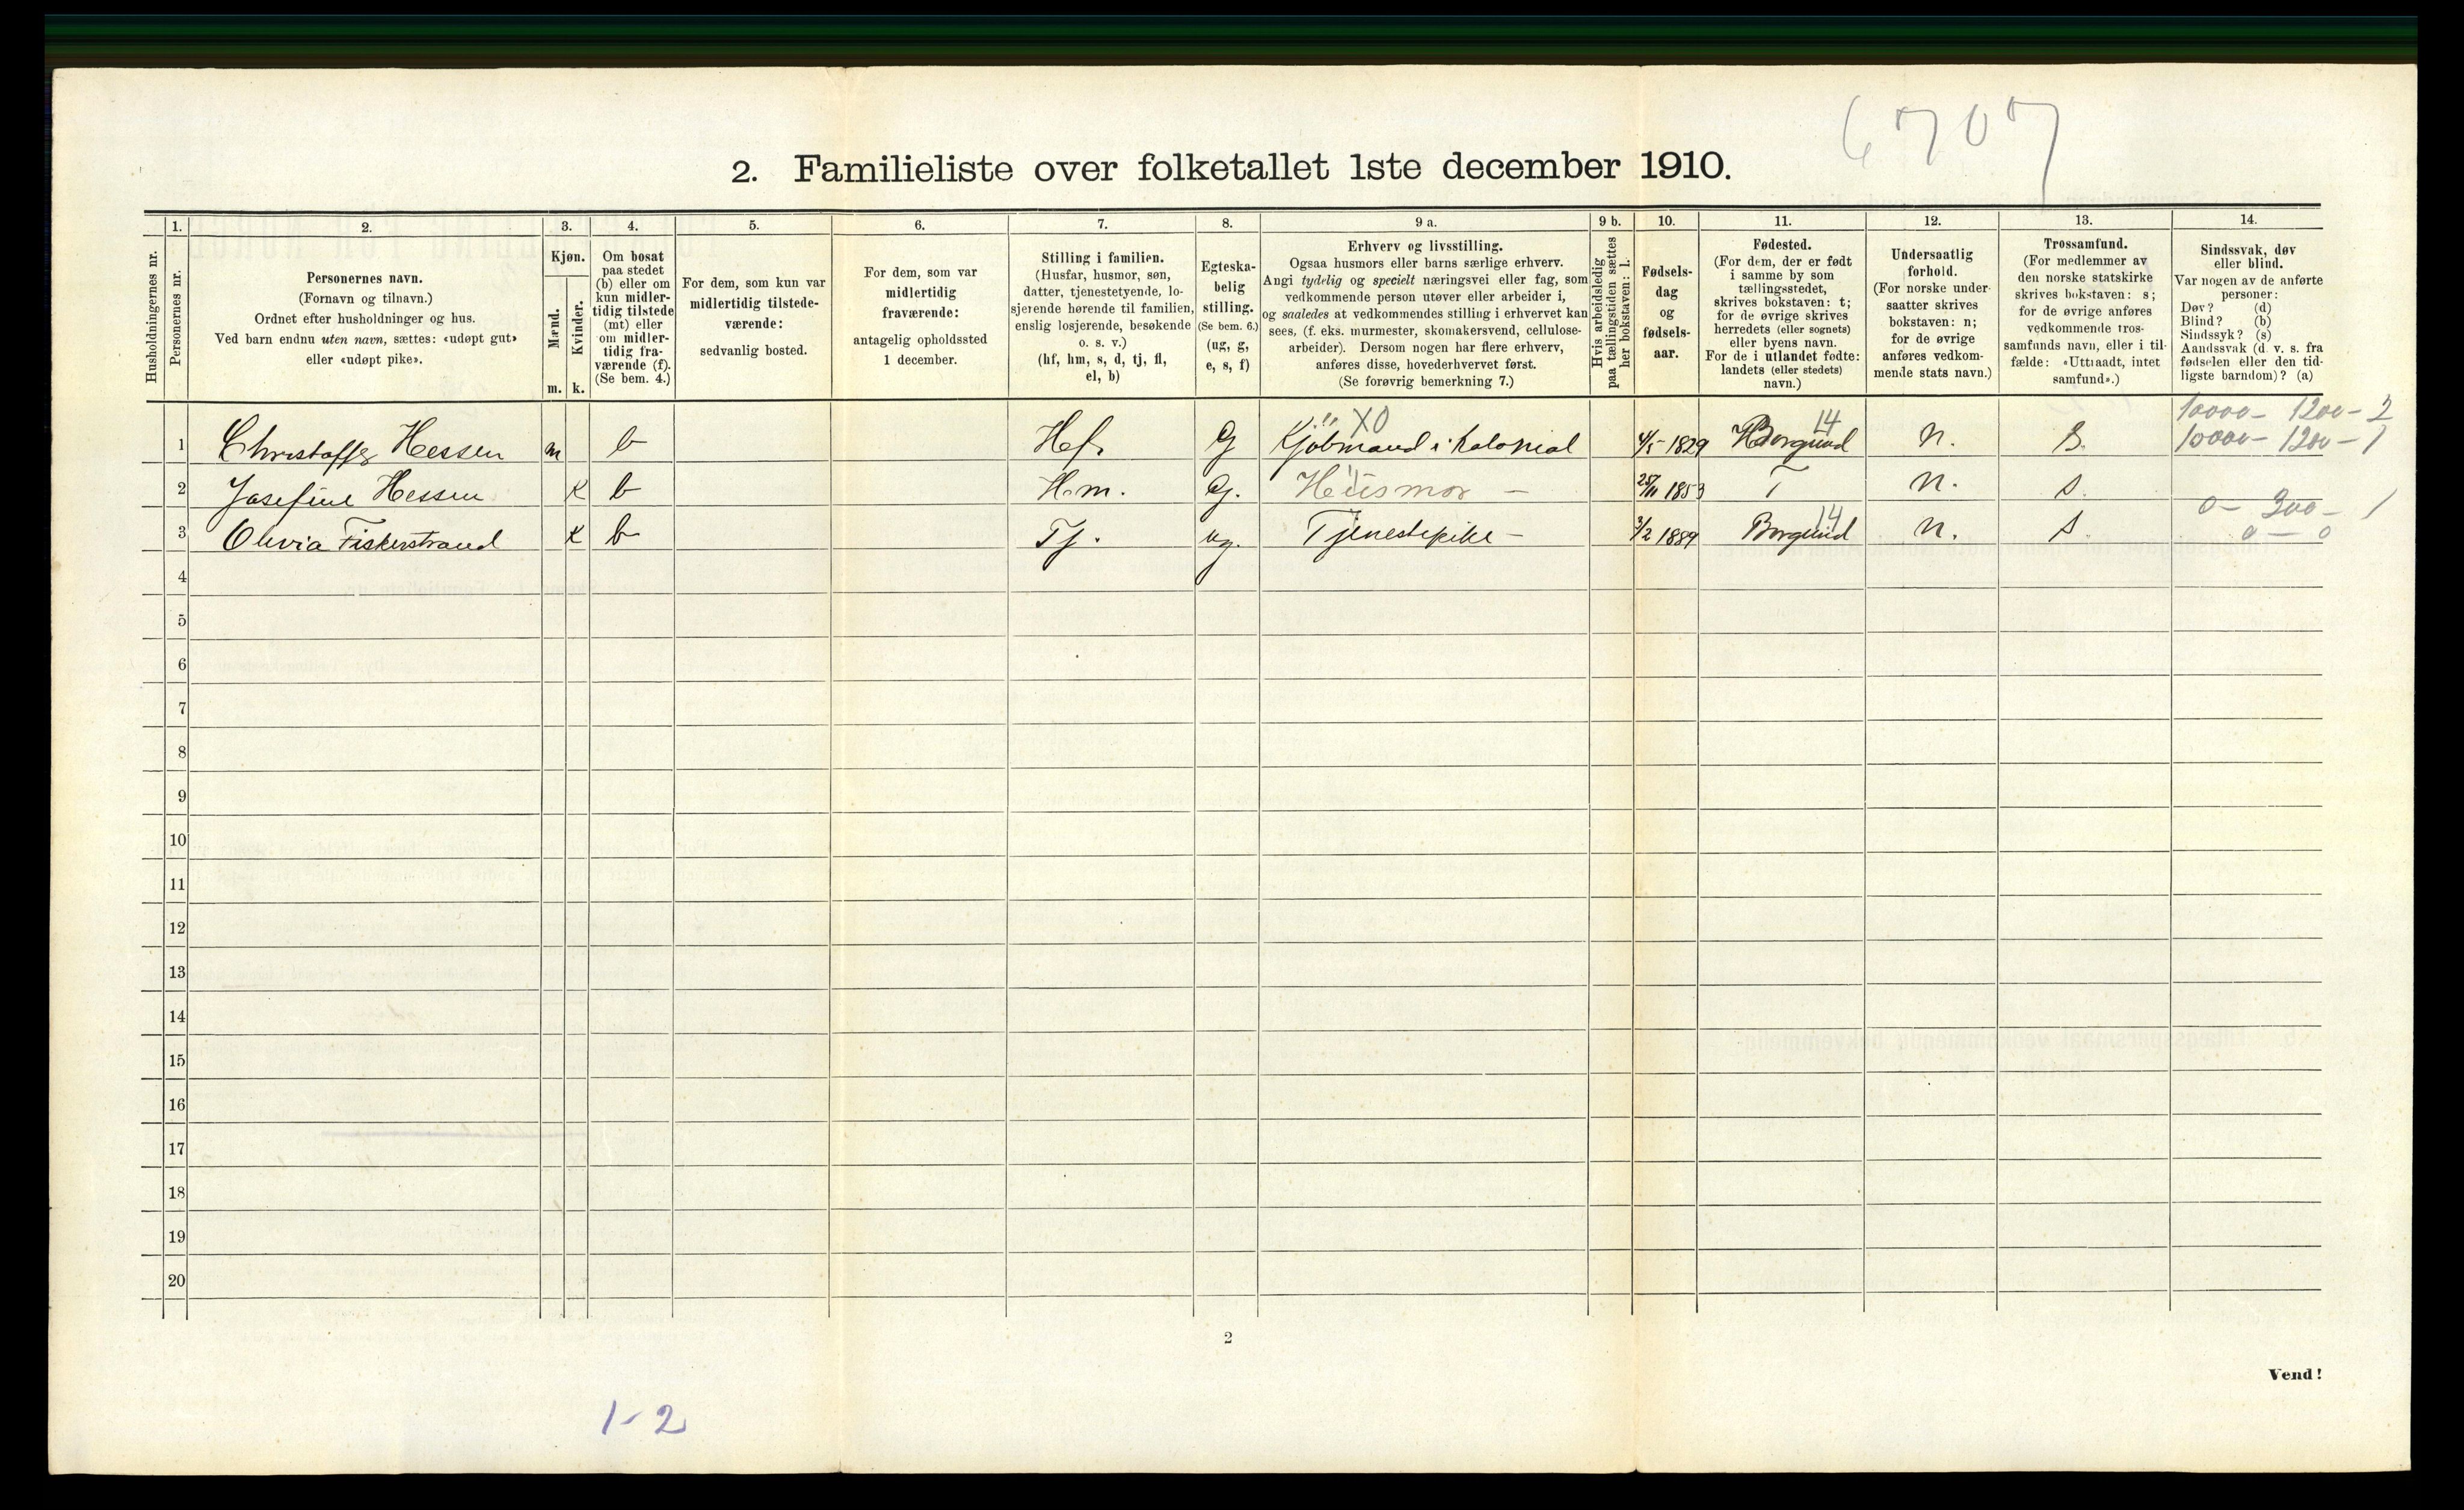 6707
2. Familieliste over folketallet 1ste december 1910.
Husholdningernes nr.
1.
Personernes nr.
2.
Personernes navn.
(Fornavn og tilnavn.)
Ordnet efter husholdninger og hus.
Ved barn endnu uten navn, sættes: «udøpt gut»
eller «udøpt pike».
3.
Kjøn.
Mænd.
Kvinder.
m. k.
4.
Om bosat
paa stedet
(b) eller om
kun midler-
tidig tilstede
(mt) eller
om midler-
tidig fra-
værende (f).
(Se bem. 4.)
5.
For dem, som kun var
midlertidig tilstede-
værende:
sedvanlig bosted.
6.
For dem, som var
midlertidig
fraværende:
antagelig opholdssted
1 december.
7.
Stilling i familien.
(Husfar, husmor, søn,
datter, tjenestetyende, lo-
sjerende hørende til familien,
enslig losjerende, besøkende
o. s. v.)
(hf, hm, s, d, tj, fl,
el, b)
8.
Egteska-
belig
stilling.
(Se bem. 6.)
(ug, g,
e, s, f)
9 a.
Erhverv og livsstilling.
Ogsaa husmors eller barns særlige erhverv.
Angi tydelig og specielt næringsvei eller fag, som
vedkommende person utøver eller arbeider i,
og saaledes at vedkommendes stilling i erhvervet kan
sees, (f. eks. murmester, skomakersvend, cellulose-
arbeider). Dersom nogen har flere erhverv,
anføres disse, hovederhvervet først.
(Se forøvrig bemerkning 7.)
9 b.
Hvis arbeidsledig
paa tællingstiden sættes
her bokstaven: l.
10.
Fødsels-
dag
og
fødsels-
aar.
11.
Fødested.
(For dem, der er født
i samme by som
tællingsstedet,
skrives bokstaven: t;
for de øvrige skrives
herredets (eller sognets)
eller byens navn.
For de i utlandet fødte:
landets (eller stedets)
navn.)
12.
Undersaatlig
forhold.
(For norske under-
saatter skrives
bokstaven: n;
for de øvrige
anføres vedkom-
mende stats navn.)
13.
Trossamfund.
(For medlemmer av
den norske statskirke
skrives bokstaven: s;
for de øvrige anføres
vedkommende tros-
samfunds navn, eller i til-
fælde: «Uttraadt, intet
samfund».)
14.
Sindssvak, døv
eller blind.
Var nogen av de anførte
personer:
Døv? (d)
Blind? (b)
Sindssyk? (s)
Aandssvak (d. v. s. fra
fødselen eller den tid-
ligste barndom)? (a)
X0 14 10000 - 1200 - 2
1 Christoffer Hessen m b Hf. G Kjöbmand i Kolonial 4/5 1829 Borgund n. S. 10000 - 1200 - 1
2 Josefine Hessen K b Hm. G. Husmor - 25/11 1853 T n. s.
14 0 - 300 - 1
3 Olivia Fiskerstrand K b Tj. ug. Tjenestepike - 3/2 1889 Borgund n. s. 0 - 0
4
5
6
7
8
9
10
11
12
13
14
15
16
17
18
19
20
2
Vend!
1-2